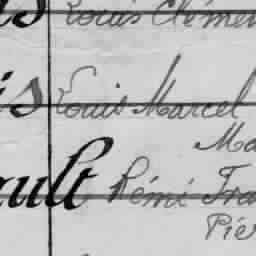 Louis Clémen
is Louis Marcel
Ma
ault Rémi Fra
Pier